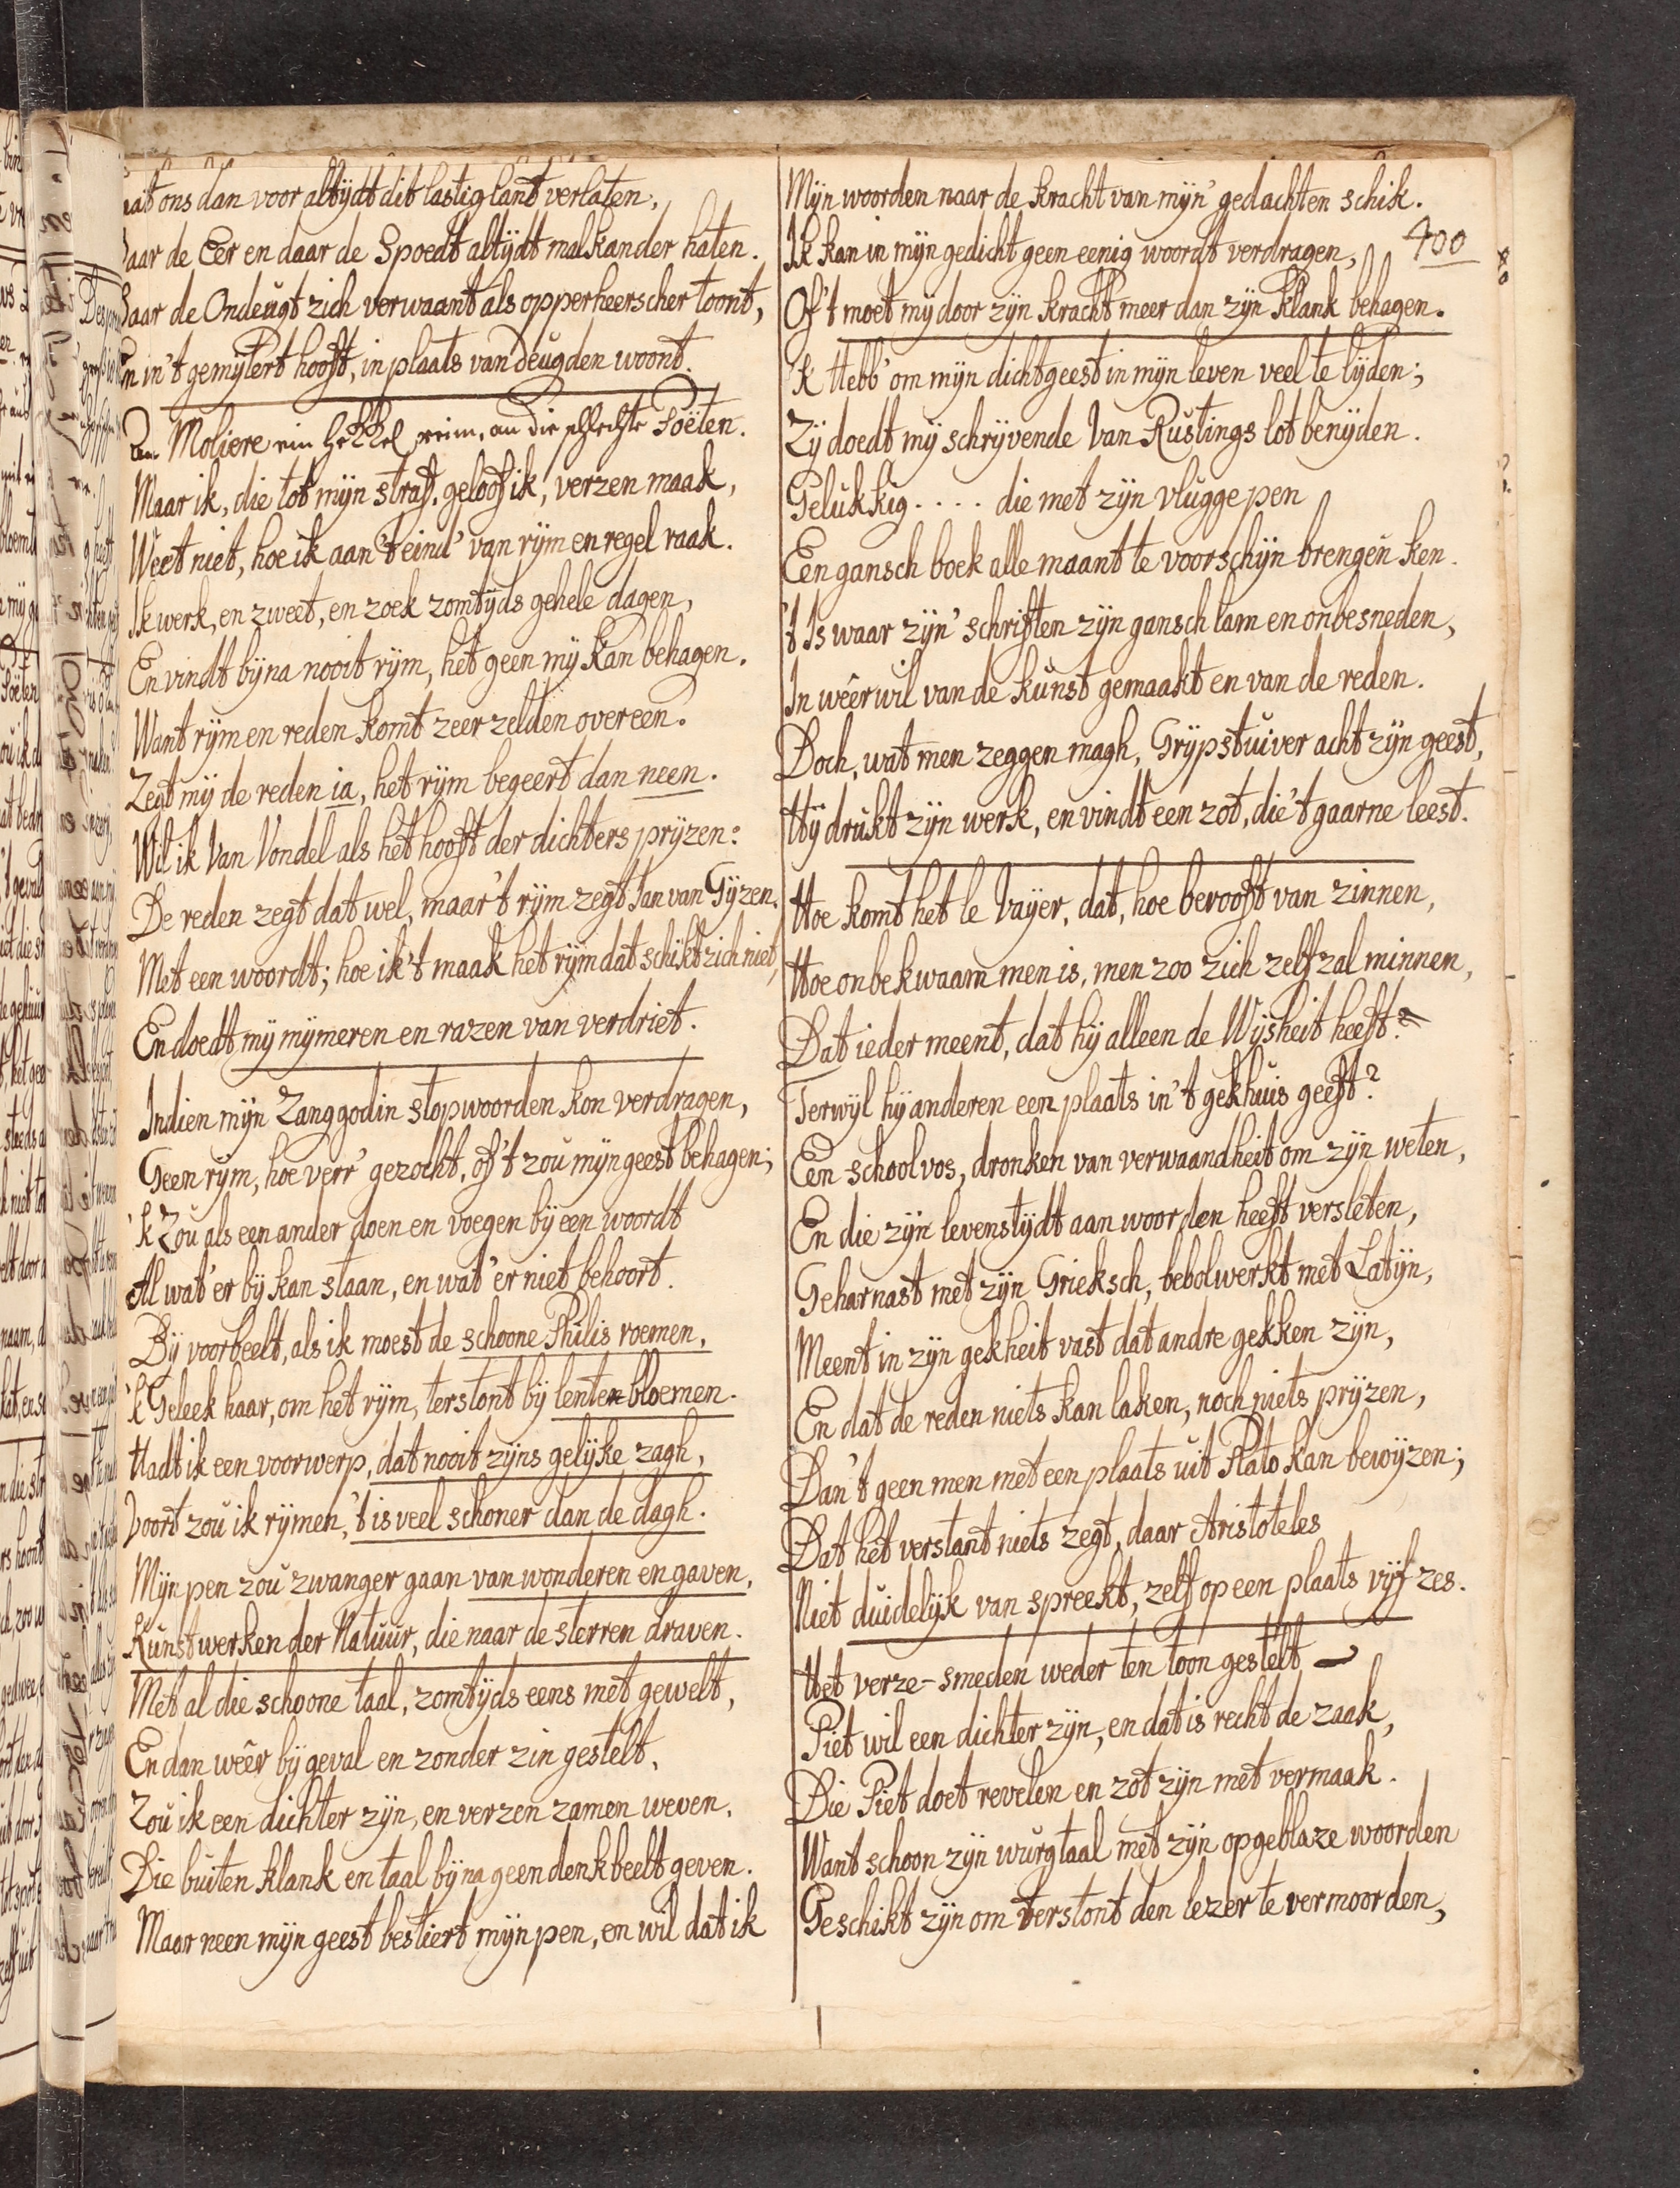 aat ons dan voor altÿdt dit lastig lant verlaten,
aar de Eer en daar de Spoedt altÿdt malkander haten.
aar de Ondeugt zich verwaant als opperheerscher toont,
n in't gemÿtert hooft, in plaats van deugden woont.
Moliere ein hekkel reim, an die schlechte Poëten.
Maar ik, die tot mÿn straf, geloof ik, verzen maak,
Weet niet, hoe ik aan 't eind' van rÿm en regel raak.
Ik werk, en zweet, en zoek zomtÿds gehele dagen,
En vindt bÿna nooit rÿm, het geen mÿ kan behagen.
Want rÿm en reden komt zeer zelden overeen.
Zegt mÿ de reden ia, het rÿm begeert dan neen.
Wil ik Van Vondel als het hooft der dichters prÿzen:
De reden zegt dat wel, maar't rÿm zegt Jan van Gÿzen.
Met een woordt; hoe ik't maak het rÿm dat schikt zich niet,
En doedt mÿ mÿmeren en razen van verdriet.
Indien mÿn Zanggodin stopwoorden kon verdragen,
Geen rÿm, hoe verr' gezocht, of 't zou mÿn geest behagen;
'k Zou als een ander doen en voegen bÿ een woordt
Al wat'er bÿ kan staan, en wat'er niet behoort.
Bÿ voorbeelt, als ik moest de schoone Philis roemen,
'k Geleek haar, om het rÿm, terstont bÿ lente-bloemen.
Hadt ik een voorwerp, dat nooit zÿns gelÿke zagh,
Voort zou ik rÿmen, 't is veel schoner dan de dagh.
Mÿn pen zou zwanger gaan van wonderen en gaven,
Kunstwerken der Natuur, die naar de sterren draven.
Met al die schoone taal, zomtÿds eens met gewelt,
En dan weêr bÿ geval en zonder zin gestelt,
Zou ik een dichter zÿn, en verzen zamen weven,
Die buiten klank en taal bÿna geen denkbeelt geven.
Maar neen mÿn geest bestiert mÿn pen, en wil dat ik
Mÿn woorden naar de kracht van mÿn' gedachten schik.
400
Ik kan in mÿn gedicht geen eenig woordt verdragen,
Of 't moet mÿ door zÿn kracht meer dan zÿn klank behagen.
'k Hebb' om mÿn dichtgeest in mÿn leven veel te lÿden;
Zÿ doedt mÿ schrÿvende Van Rustings lot benÿden.
Gelukkig.... die met zÿn vlugge pen
Een gansch boek alle maant te voorschÿn brengen ken.
't Is waar zÿn' schriften zÿn gansch lam en onbesneden,
In wêerwil van de kunst gemaakt en van de reden.
Doch, wat men zeggen magh, Grÿpstuiver acht zÿn geest,
Hÿ drukt zÿn werk, en vindt een zot, die 't gaarne leest.
Hoe komt het le Vaÿer, dat, hoe berooft van zinnen,
Hoe onbekwaam men is, men zoo zich zelf zal minnen,
Dat ieder meent, dat hÿ alleen de Wÿsheit heeft?
Terwÿl hÿ anderen een plaats in 't gekhuis geeft?
Een schoolvos, dronken van verwaandheit om zÿn weten,
En die zÿn levenstÿdt aan woorden heeft versleten,
Geharnast met zÿn Grieksch, bebolwerkt met Latÿn,
Meent in zÿn gekheit vast dat andre gekken zÿn,
En dat de reden niets kan laken, noch niets prÿzen,
Dan 't geen men met een plaats uit Plato kan bewÿzen;
Dat het verstant niets zegt, daar Aristoteles
Niet duidelÿk van spreekt, zelf op een plaats vÿf zes.
Het verze-smeden weder ten toon gestelt
Piet wil een dichter zÿn, en dat is recht de zaak,
Die Piet doet revelen en zot zÿn met vermaak.
Want schoon zÿn wurgtaal met zÿn opgeblaze woorden
Geschikt zÿn om terstont den lezer te vermoorden,